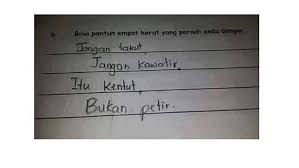 Bina pantun empat kerat yang pernah anda dengar.
Jangan takut,
Jangan Kawatir,
Itu Kentut,
Bukan petir.